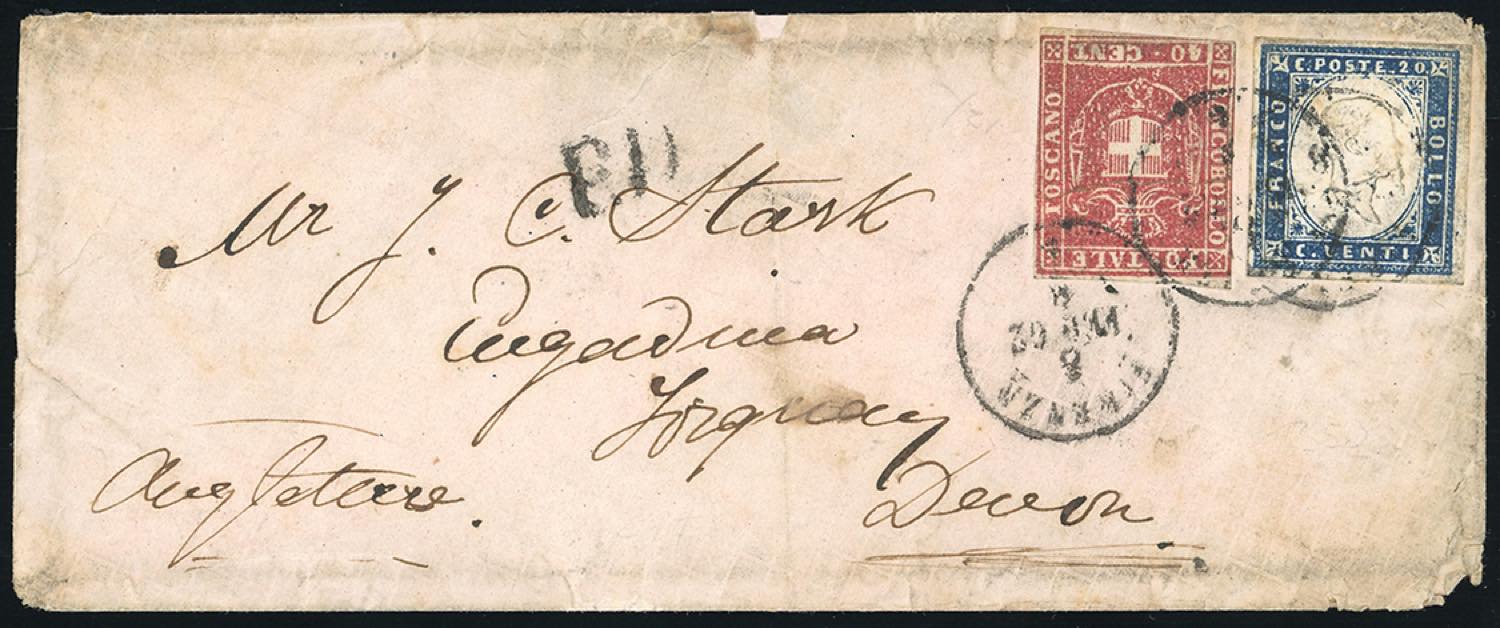 PD
Mr J. C. Stark
Engadina
Torquay
Devon
Angleterre.
FRANCOBOLLO
POSTALE
TOSCANO
40 CENT
C. POSTE. 20.
FRANCO
BOLLO
C. VENTI
FIRENZE
8
MAR 62